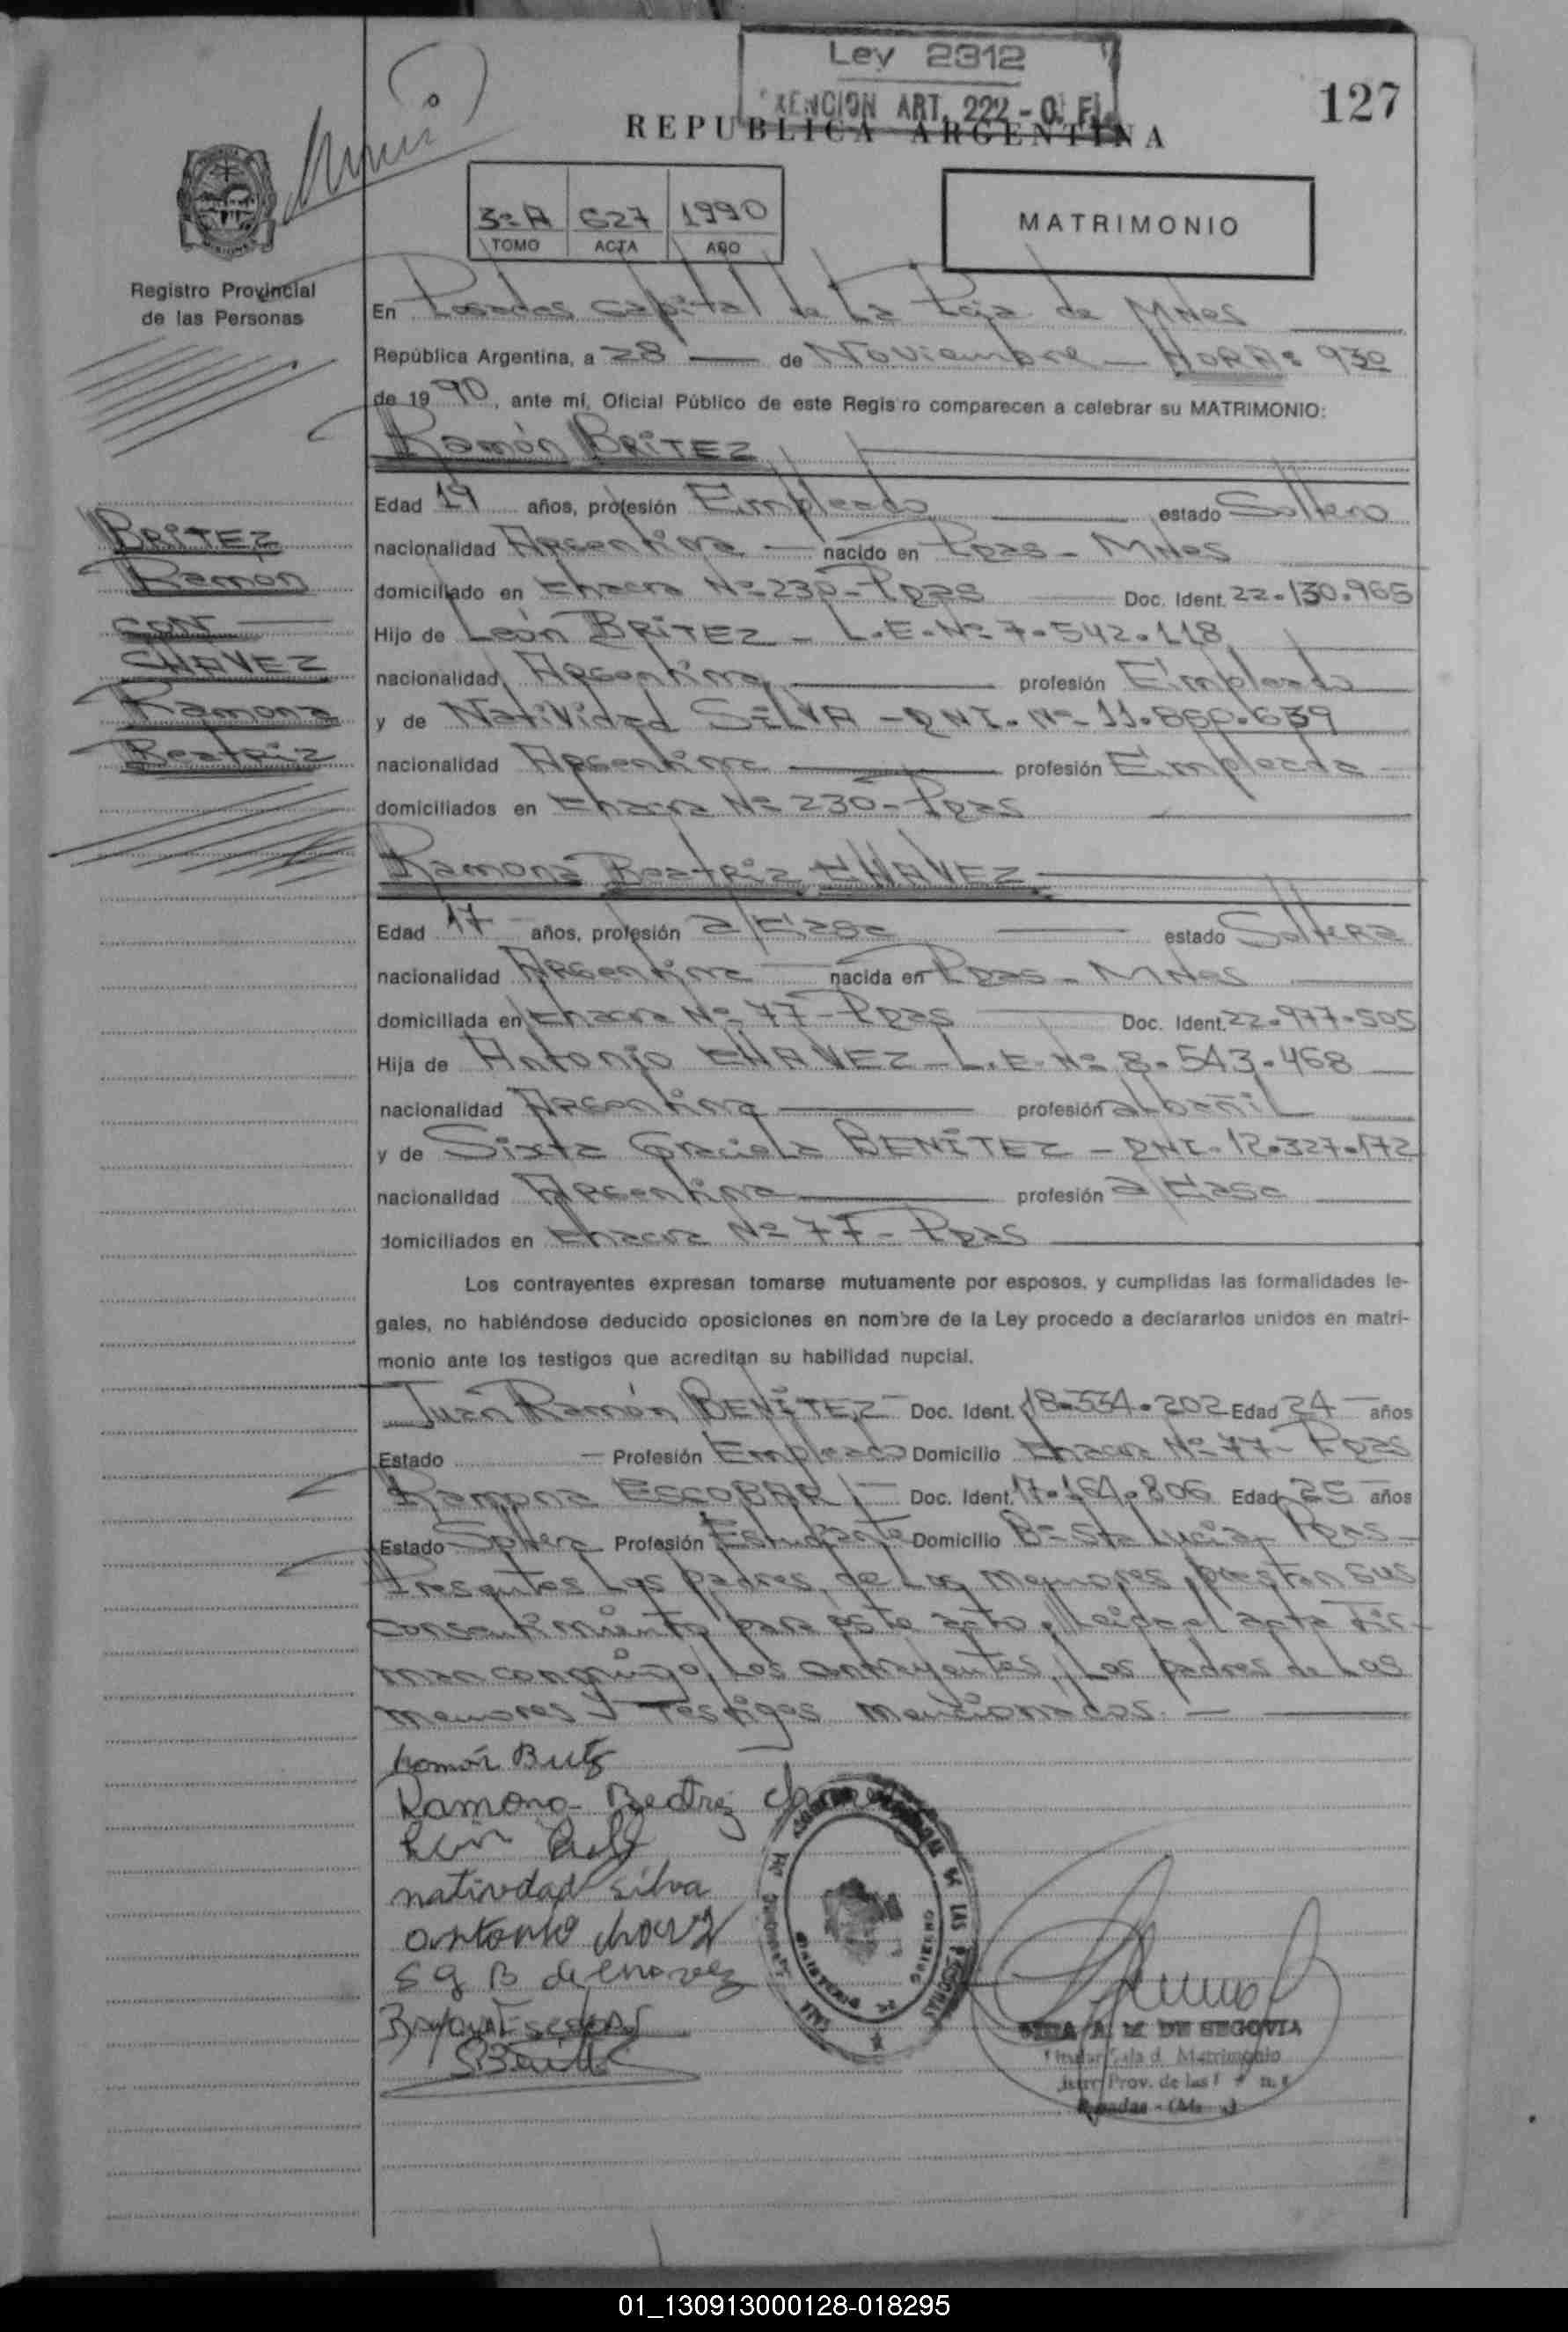 Ley 2312
EXENCION ART. 222 - C. F.
127
REPUBLICA ARGENTINA
3º A 627 1990
TOMO ACTA AÑO
MATRIMONIO
Registro Provincial
de las Personas
En Posadas Capital de La Pcia de Mnes
República Argentina, a 28 de Noviembre - HORA: 930
de 19 90, ante mí, Oficial Público de este Registro comparecen a celebrar su MATRIMONIO:
Ramón BRITEZ
Edad 19 años, profesión Empleado estado Soltero
nacionalidad Argentina nacido en Pdas - Mnes
domiciliado en Chacra Nº 230 - Pdas Doc. Ident. 22.130.965
Hijo de León BRITEZ - L.E. Nº 7.542.118
nacionalidad Argentina profesión Empleado
y de Natividad SILVA - DNI. Nº 11.860.639
nacionalidad Argentina profesión Empleada
domiciliados en Chacra Nº 230 - Pdas
BRITEZ
Ramón
CON
CHAVEZ
Ramona
Beatriz
Ramona Beatriz CHAVEZ
Edad 17 años, profesión a/Casa estado Soltera
nacionalidad Argentina nacida en Pdas - Mnes
domiciliada en Chacra Nº 77 - Pdas Doc. Ident. 22.977.505
Hija de Antonio CHAVEZ - L.E. Nº 8.543.468
nacionalidad Argentina profesión albañil
y de Sixta Graciela BENITEZ - DNI. 12.327.172
nacionalidad Argentina profesión a/Casa
domiciliados en Chacra Nº 77 - Pdas
Los contrayentes expresan tomarse mutuamente por esposos, y cumplidas las formalidades le-
gales, no habiéndose deducido oposiciones en nombre de la Ley procedo a declararlos unidos en matri-
monio ante los testigos que acreditan su habilidad nupcial.
Juan Ramón BENITEZ - Doc. Ident. 18.534.202 Edad 24 años
Estado - Profesión Empleado Domicilio Chacra Nº 77 - Pdas
Ramona ESCOBAR - Doc. Ident. 17.164.806 Edad 25 años
Estado Soltera Profesión Estudiante Domicilio Bº Sta Lucía Pdas
Presentes Los padres de Los menores prestan sus
consentimiento para este acto, Leida el acta Fir-
man conmigo, Los contrayentes, Los padres de Los
menores y Testigos mencionados.
Ramón Britez
Ramona Beatriz Chavez
natividad silva
antonio chavez
S g B de chavez
Ramona Escobar
A. M. DE SEGOVIA
Matrimonio
Prov. de las
Posadas - (Mnes)
01_130913000128-018295